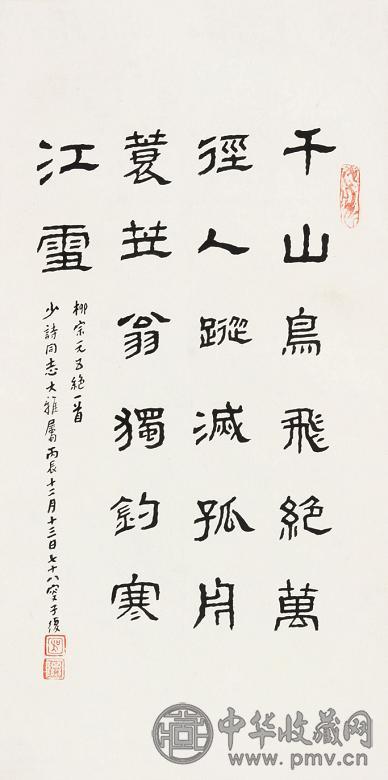 千山鳥飛絕萬
徑人蹤滅孤舟
蓑笠翁獨釣寒
江雪
柳宗元五絕一首
少詩同志大雅屬 丙辰十二月十三日七十八叟子復
中华收藏网
www.pmv.cn